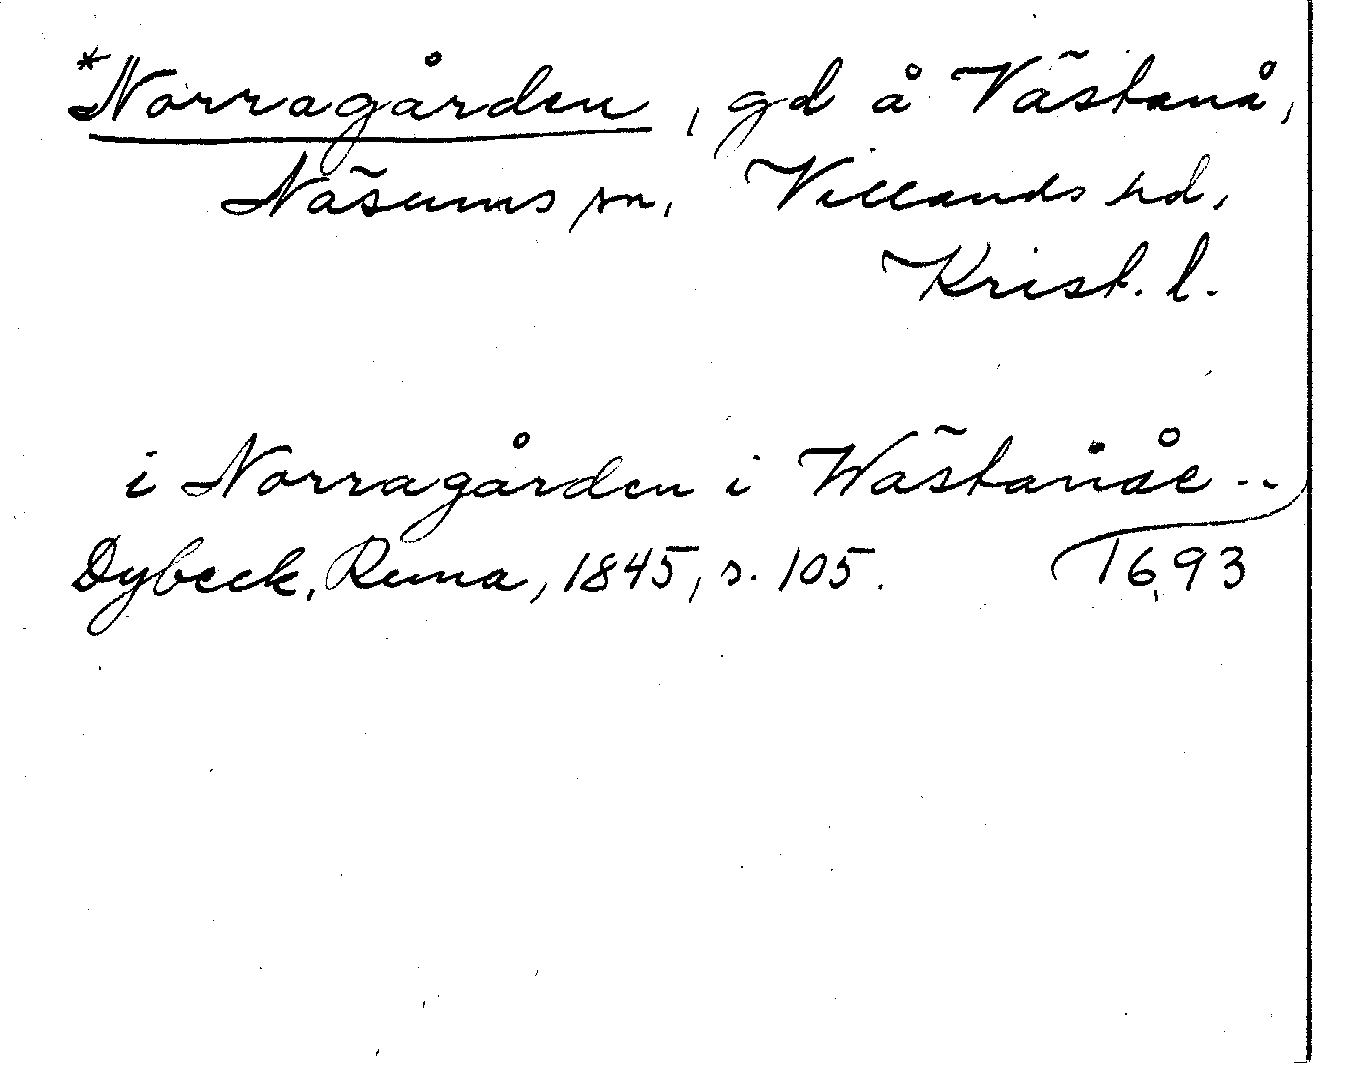 *Norragården, gd å Västanå,
Näsums sn, Villands hd,
Krist. l.
i Norragården i Wästanåe ..
1693
Dybeck, Runa, 1845, s. 105.